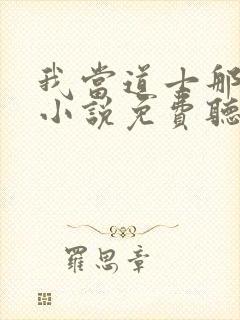 我當道士那
小說免費聽
羅思章